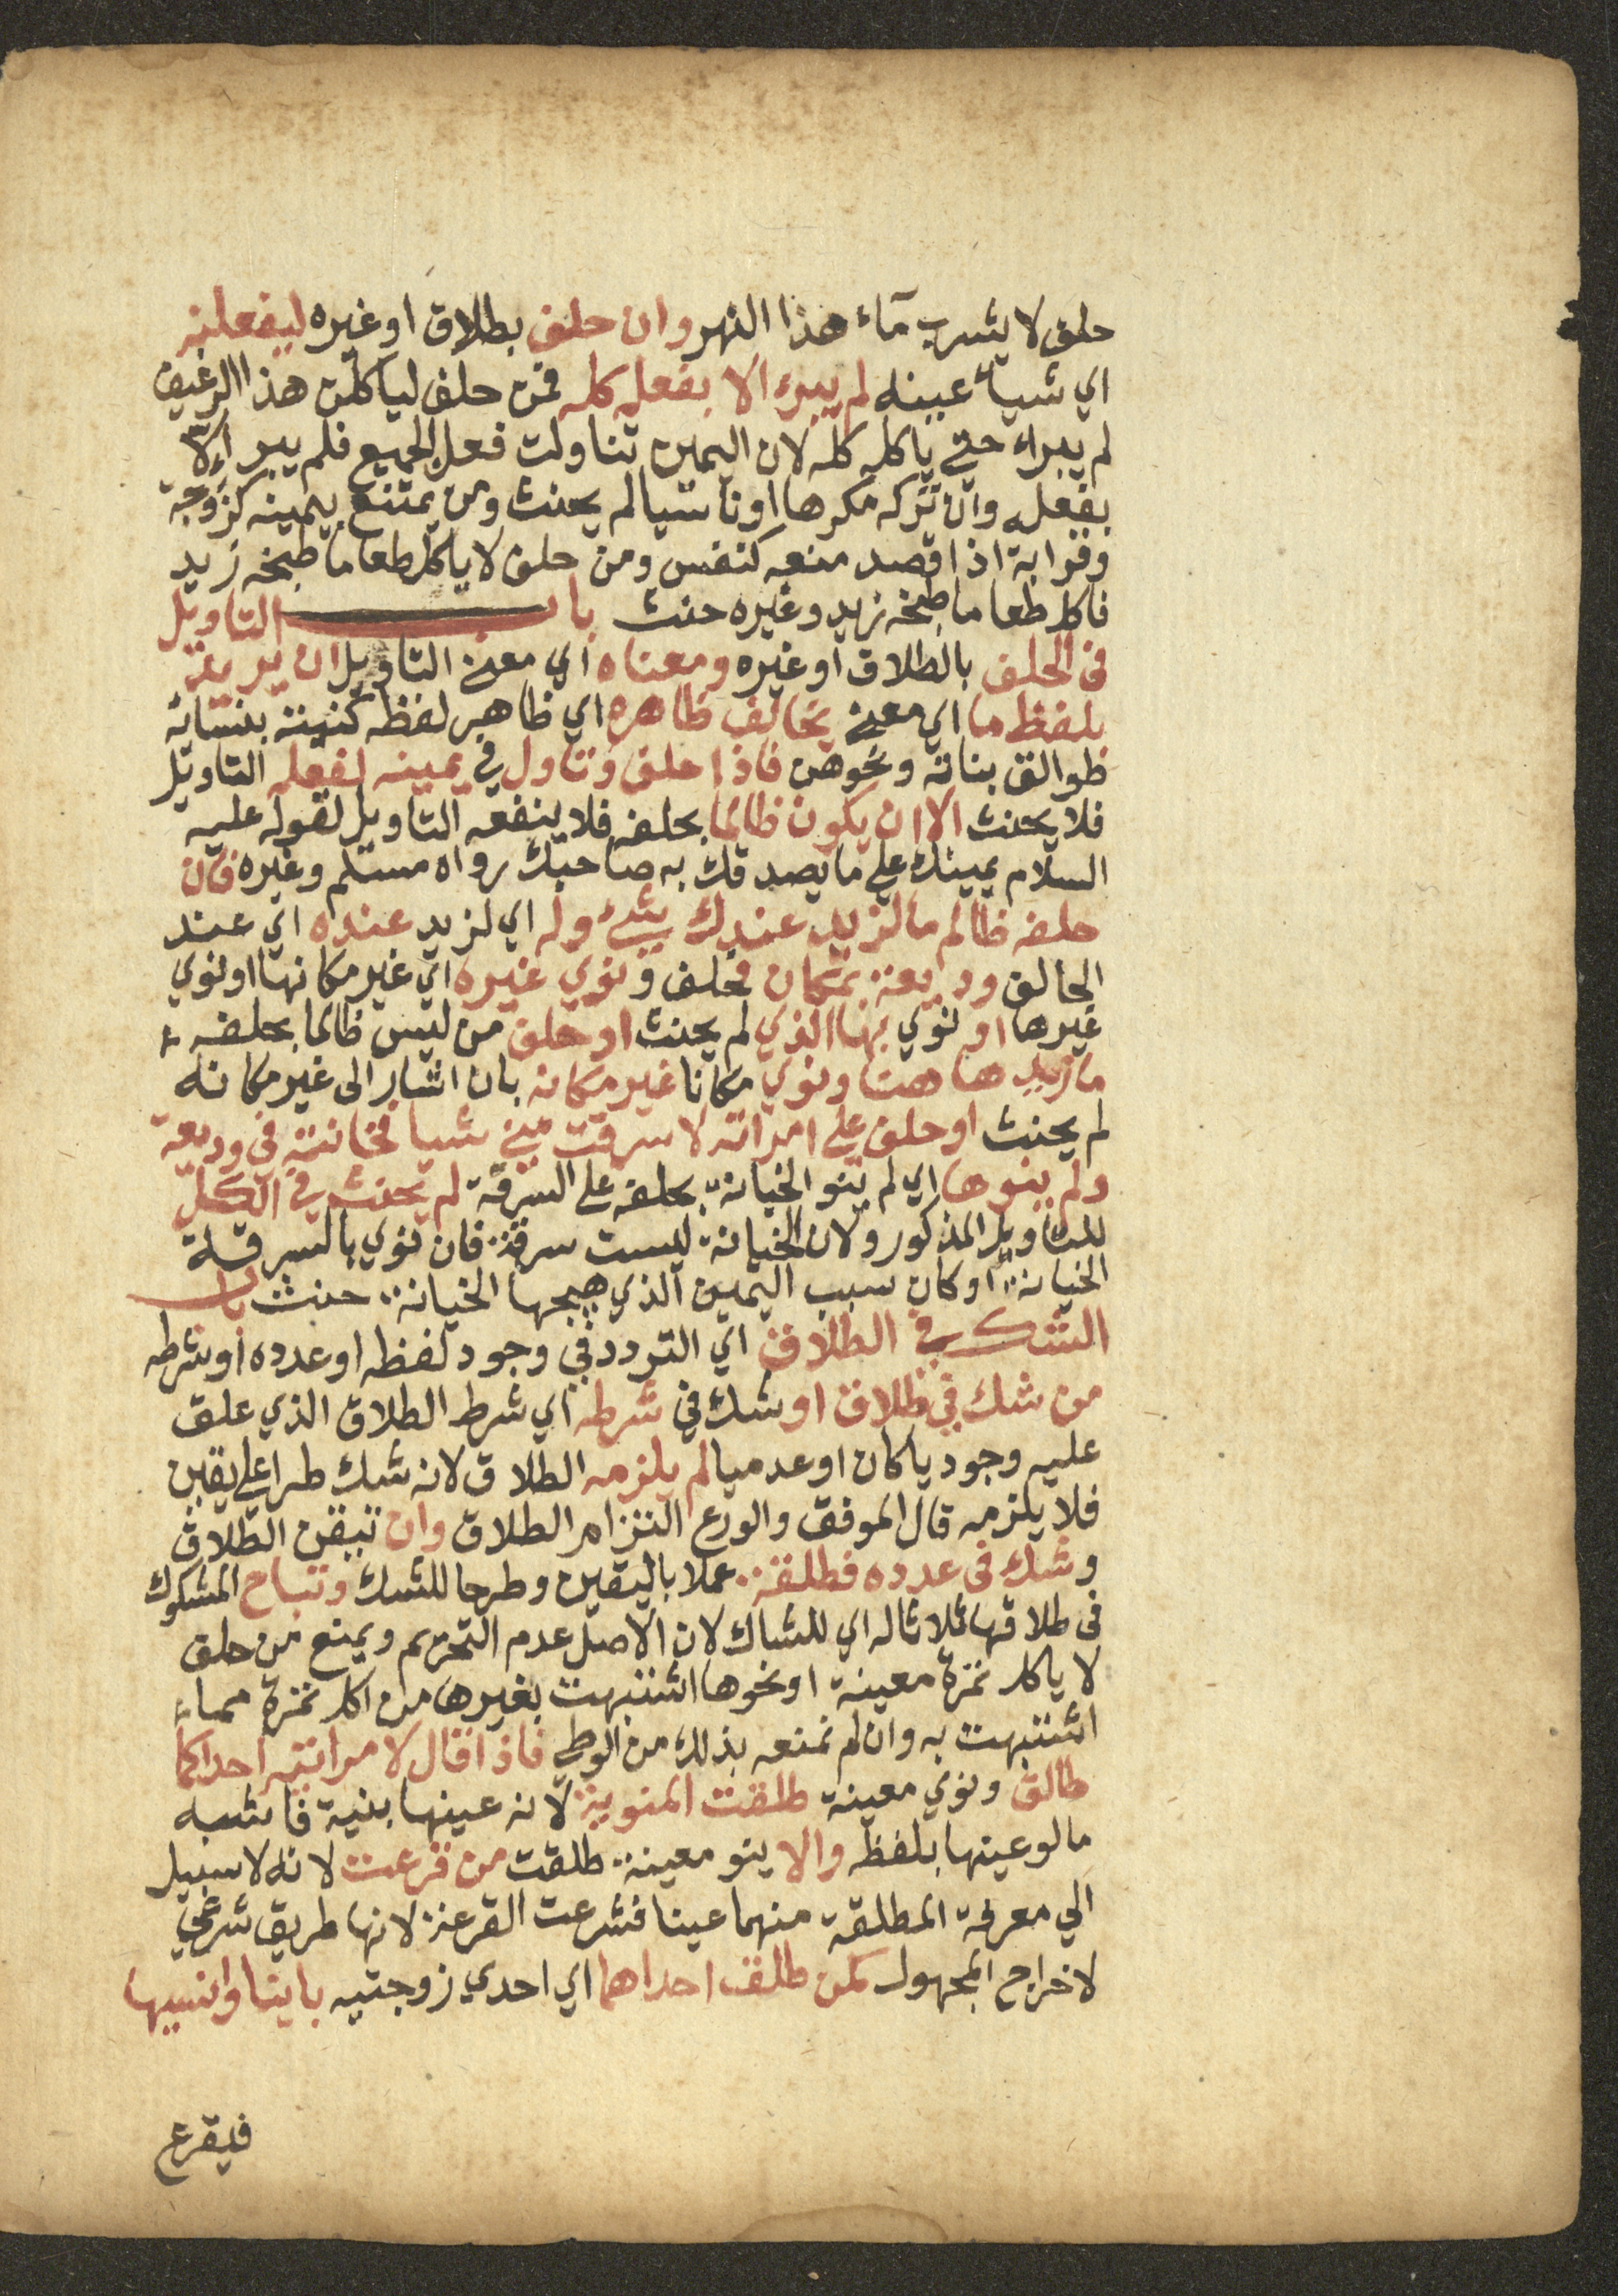 حلف لا يشرب مآء هذا النهر وان حلف بطلاق او غيره ليفعلنه
اي شيا عينه لم يبرء الا بفعله كله فمن حلف لياكلن هذا الرغيف
لم يبراء حتي ياكله كله لان اليمين تناولت فعل الجميع فلم يبر الا
بفعله وان تركه مكرها او ناسيا لم يحنث ومن يمتنع بيمينه كزوجة
وقرابة اذا قصد منعه كنفس ومن حلف لا ياكل طعاما طبخه زيد
فاكل طعاما طبخه زيد وغيره حنث باب التاويل
فى الحلف بالطلاق او غيره ومعناه اي معنى التاويل ان يريد
بلفظ ما اي معنى يخالف ظاهره اي ظاهر لفظه كنيته بنسائه
طوالق بناته ونحوهن فاذا حلف وتاول في يمينه نفعه التاويل
فلا يحنث الا ان يكون ظالما بحلفه فلا ينفعه التاويل لقوله عليه
السلام يمينك علي ما يصدقك به صاحبك رواه مسلم وغيره فان
حلفه ظالم ما لزيد عندك شئ وله اي لزيد عنده اي عند
الحالف وديعة بمكان فحلف ونوي غيره اي غير مكانها او نوي
غيرها او نوي بما الذي لم يحنث او حلف من ليس ظالما بحلفه
ما زيد هاهنا ونوي مكانا غير مكانه بان اشار الى غير مكانه
لم يحنث او حلف علي امراته لا سرقت مني شيا فخانته فى وديعة
ولم ينوها اي لم ينو الخيانة بحلفه على السرقة لم يحنث في الكل
للتاويل المذكور ولان الخيانة ليست سرقة فان نوي بالسرقة
الخيانة او كان سبب اليمين الذي هيجها الخيانة حنث باب
الشك في الطلاق اي التردد في وجود لفظه او عدده او شرطه
من شك في طلاق او شك في شرطه اي شرط الطلاق الذي علق
عليه وجوديا كان او عدميا لم يلزمه الطلاق لانه شك طرا علي يقين
فلا يلزمه قال الموفق والورع التزام الطلاق وان تيقن الطلاق
وشك فى عدده فطلقة عملا باليقين وطرحا للشك وتباح المشكوك
فى طلاقها ثلاثا له اي للشاك لان الاصل عدم التحريم ويمنع من حلف
لا ياكل تمرة معينة او نحوها اشتبهت بغيرها من اكل تمرة مما
اشتبهت به وان لم نمنعه بذلك من الوطي فاذا قال لامراتيه احداكما
طالق ونوي معينة طلقت المنوية لانه عينها بنية فاشبه
ما لو عينها بلفظه والا ينو معينة طلقت من قرعت لانه لا سبيل
الي معرفة المطلقة منهما عينا فشرعت القرعة لانها طريق شرعي
لاخراج المجهول كمن طلق احداهما اي احدي زوجتيه باينا وانسيها
فيقرع